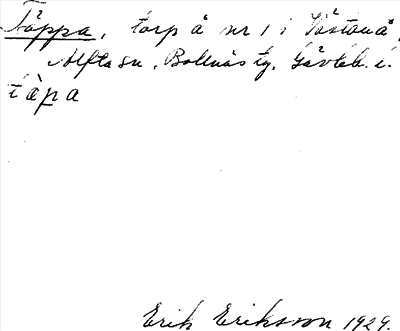 Täppa, torp å nr 1 i Västanå,
Alfta sn, Bollnäs tg, Gävleb. l.
tàpa
Erik Eriksson 1929.